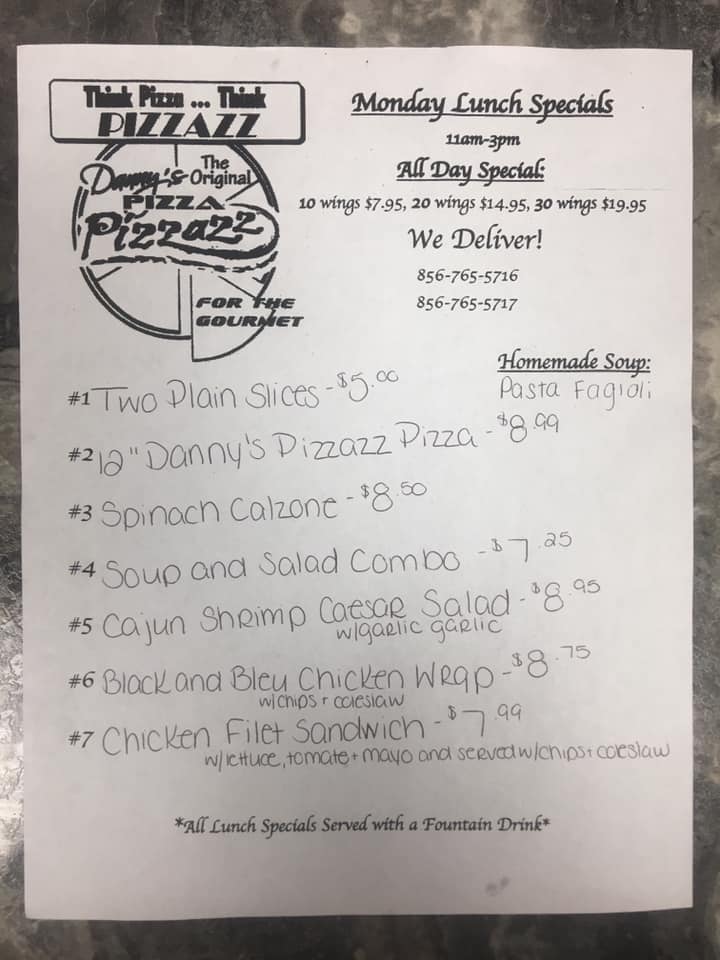 Think Pizza ... Think
PIZZAZZ
Danny's The Original
PIZZA
Pizzazz
FOR THE
GOURMET
Monday Lunch Specials
11am-3pm
All Day Special:
10 wings $7.95, 20 wings $14.95, 30 wings $19.95
We Deliver!
856-765-5716
856-765-5717
Homemade Soup:
Pasta Fagioli
#1 Two Plain Slices - $5.00
#2 12" Danny's Pizzazz Pizza - $8.99
#3 Spinach Calzone - $8.50
#4 Soup and Salad Combo - $7.25
#5 Cajun Shrimp Caesar Salad - $8.95
w/garlic garlic
#6 Black and Bleu Chicken Wrap - $8.75
w/chips + coleslaw
#7 Chicken Filet Sandwich - $7.99
w/lettuce, tomato + mayo and served w/chips + coleslaw
*All Lunch Specials Served with a Fountain Drink*